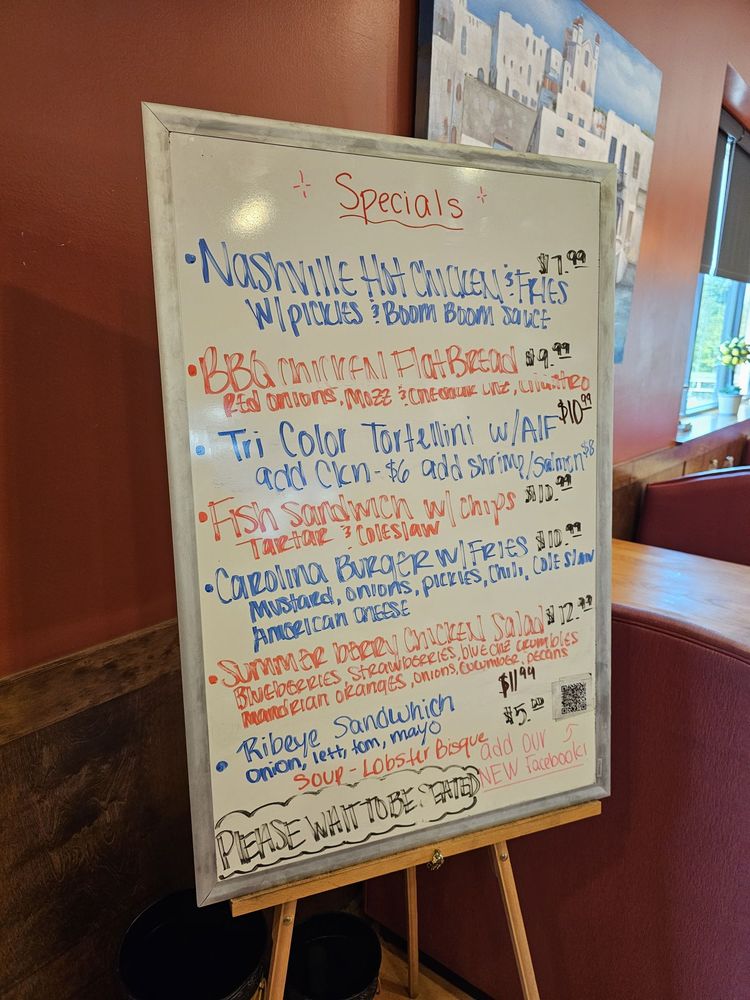 Specials
• Nashville Hot Chicken & Fries $7.99
w/pickles & Boom Boom Sauce
• BBQ Chicken FlatBread $9.99
Red onions, Mozz & Cheddar chz, cilantro
• Tri Color Tortellini w/ALF $10.99
add Ckn-$6 add shrimp/Salmon $8
• Fish Sandwich w/chips $10.99
Tartar & Coleslaw
• Carolina Burger w/Fries $10.99
Mustard, onions, pickles, Chili, Coleslaw
American cheese
• Summer berry Chicken Salad $12.99
Blueberries, Strawberries, blue chz crumbles
Mandrian oranges, onions, cucumber, pecans
• Ribeye Sandwhich $11.99
onion, lett, tom, mayo
Soup - Lobster Bisque $5.00
add our
NEW Facebook!
PLEASE WAIT TO BE SEATED